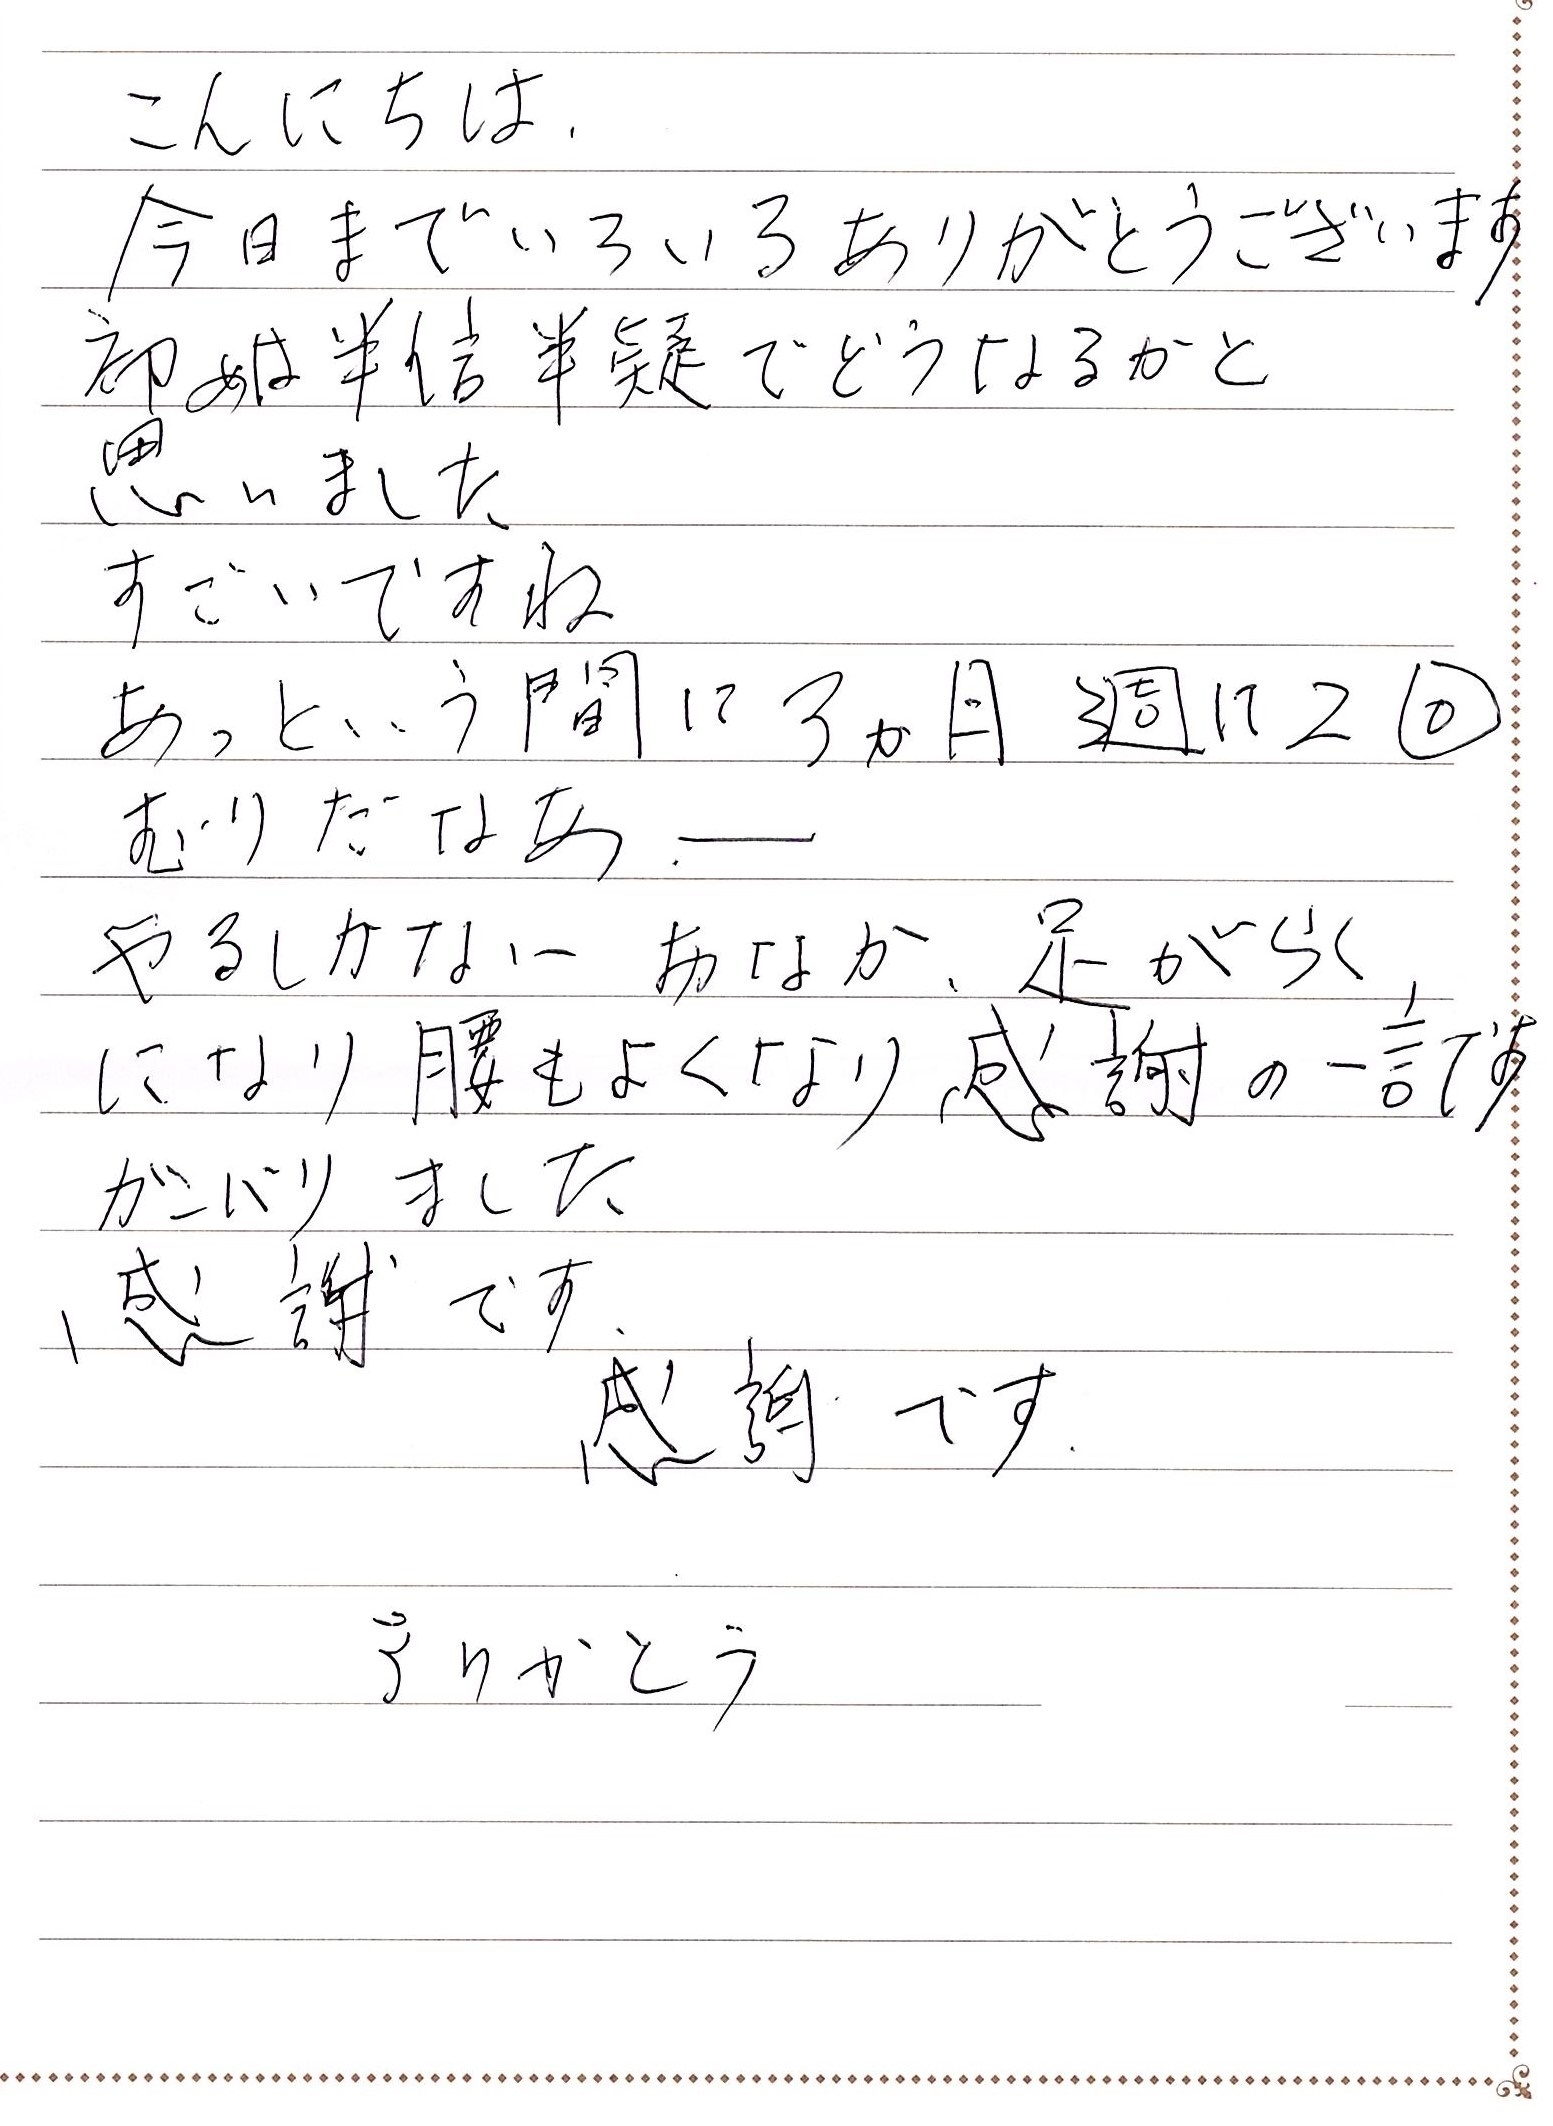 こんにちは.
今日までいろいろありがとうございます
初めは半信半疑でどうなるかと
思いました
すごいですね
あっという間に3か月 週に2回
むりだなあ.―
やるしかない おなか、足がらく
になり腰もよくなり感謝の一言です
がんばりました
感謝です.
感謝です.
ありがとう